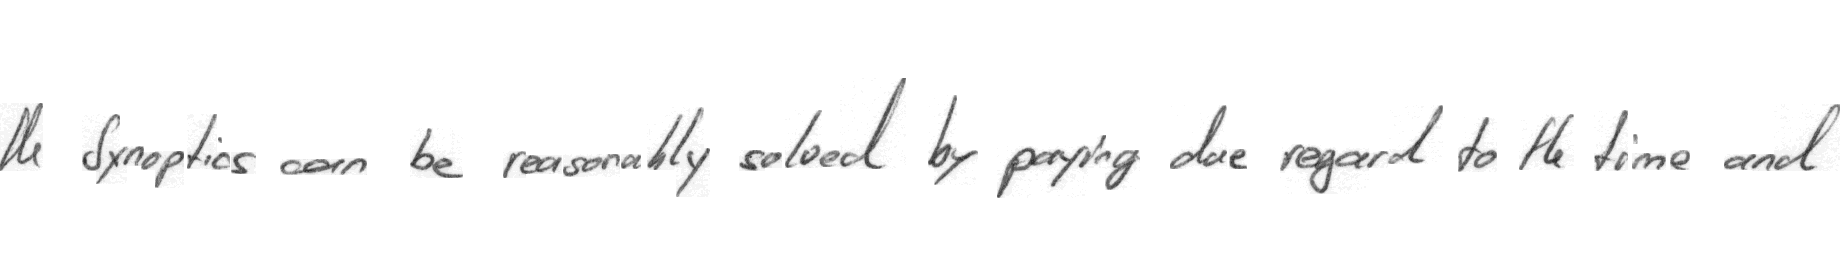 the Synoptics can be reasonably solved by paying due regard to the time and